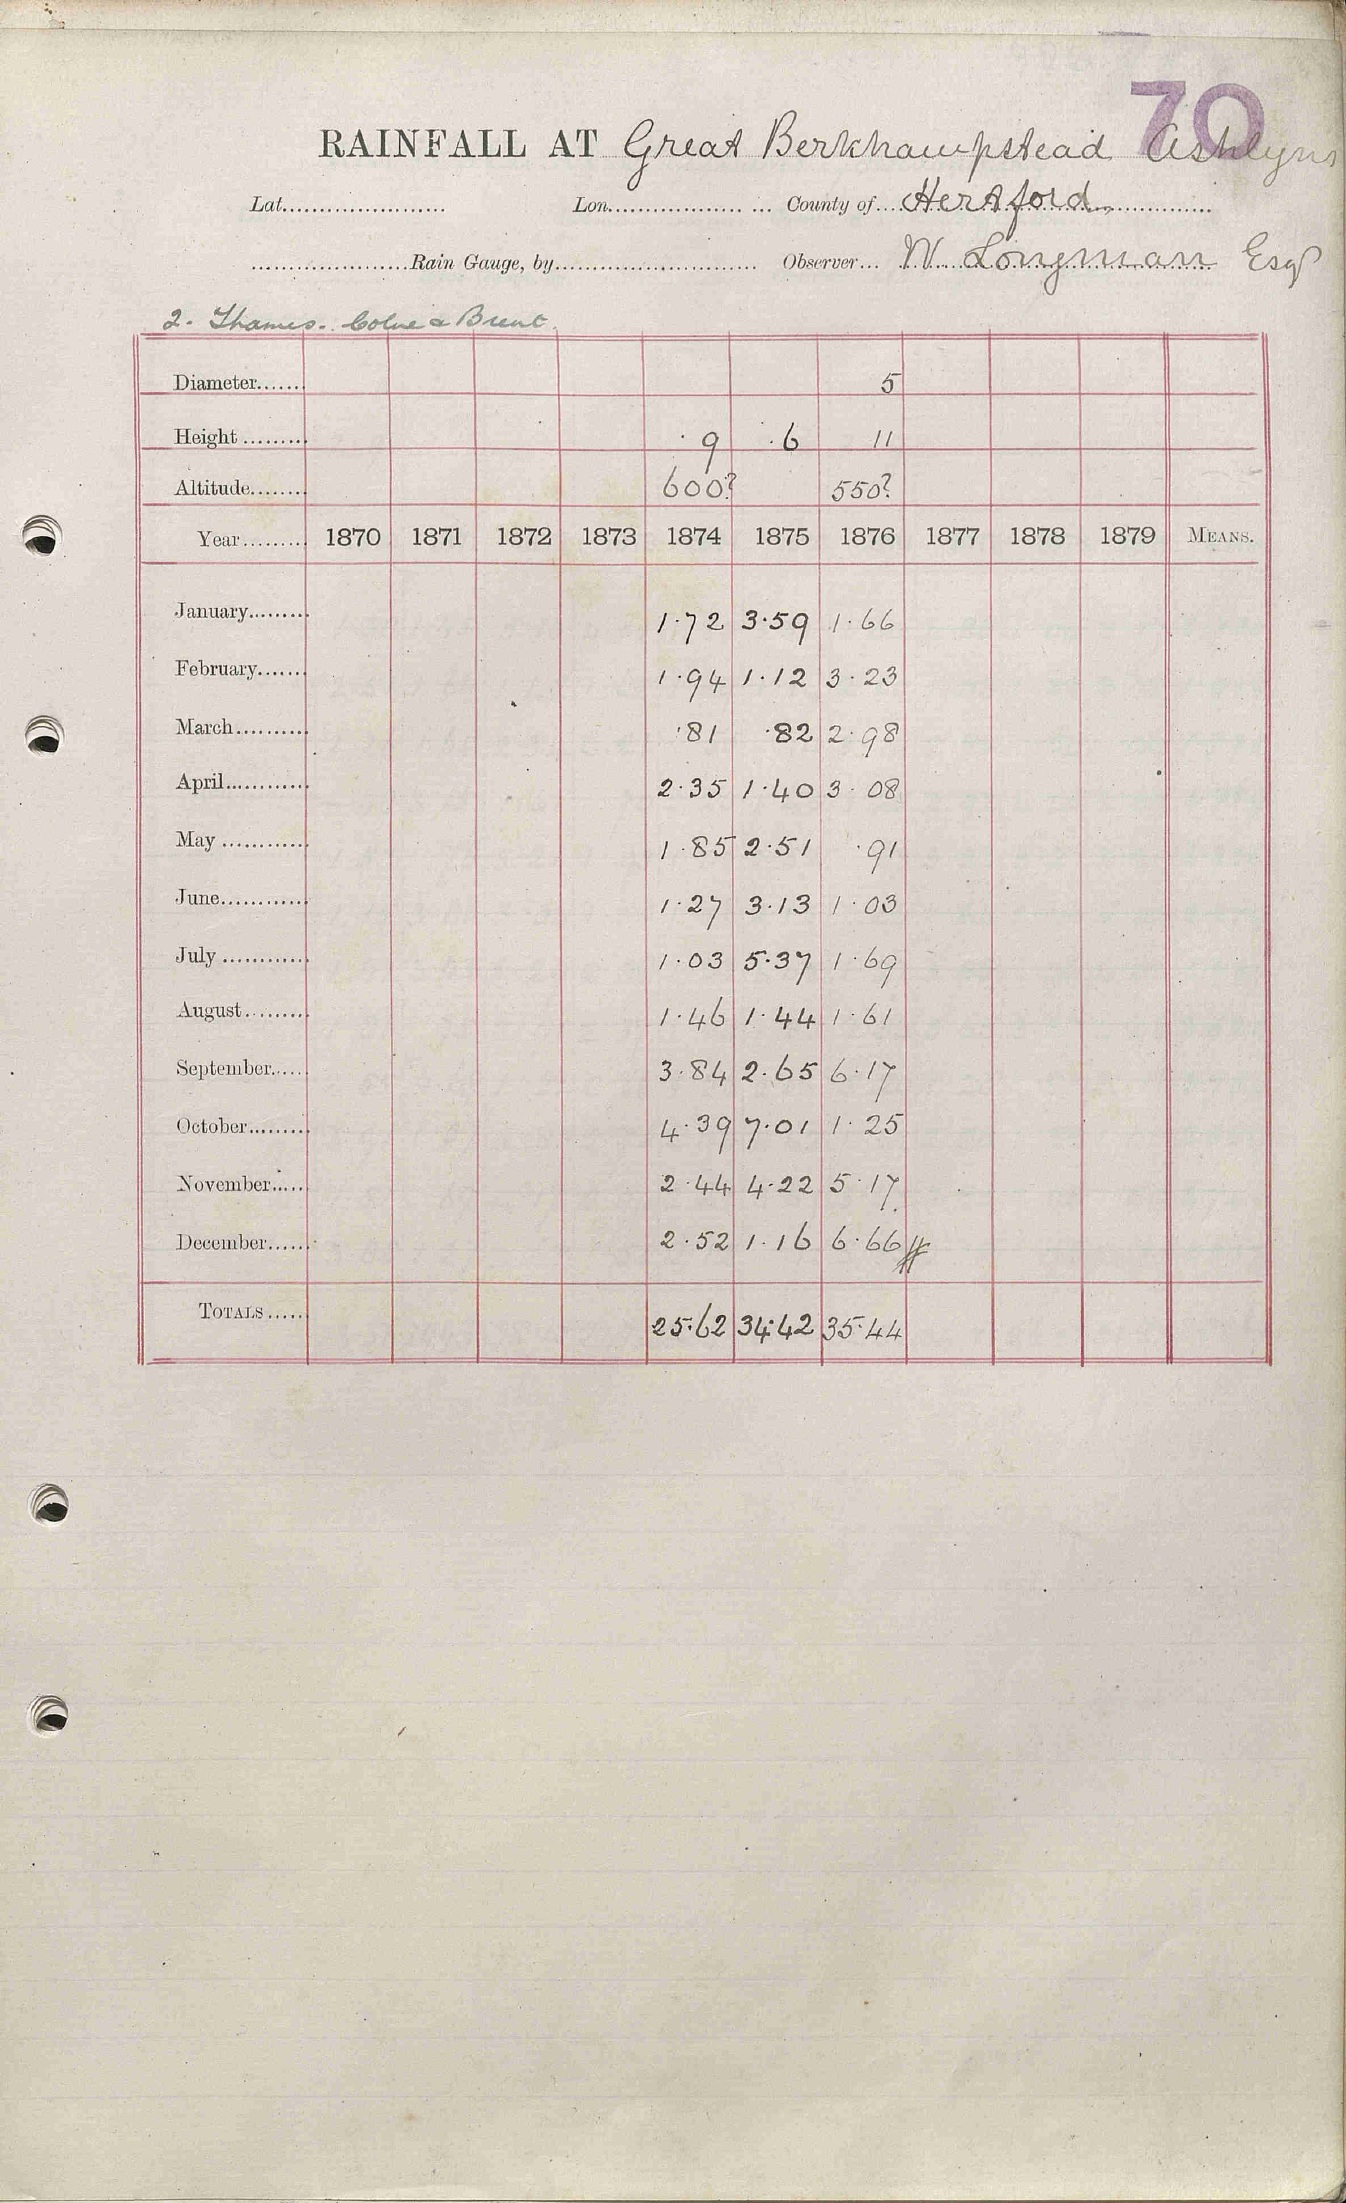 70
RAINFALL AT Great Berkhampstead Ashlyns
Lat...................... Lon.................. ... County of... Hertford
.....................Rain Gauge, by........................... Observer... W Longman Esq
2. Thames. Colne & Brent.
Diameter....... 5
Height ......... ·9 ·6 11
Altitude........ 600? 550?
Year......... 1870 1871 1872 1873 1874 1875 1876 1877 1878 1879 MEANS.
January......... 1·72 3·59 1·66
February....... 1·94 1·12 3·23
March.......... ·81 ·82 2·98
April............ 2·35 1·40 3·08
May ............ 1·85 2·51 ·91
June............ 1·27 3·13 1·03
July ............ 1·03 5·37 1·69
August......... 1·46 1·44 1·61
September...... 3·84 2·65 6·17
October......... 4·39 7·01 1·25
November..... 2·44 4·22 5·17
December...... 2·52 1·16 6·66 #
TOTALS...... 25·62 34·42 35·44